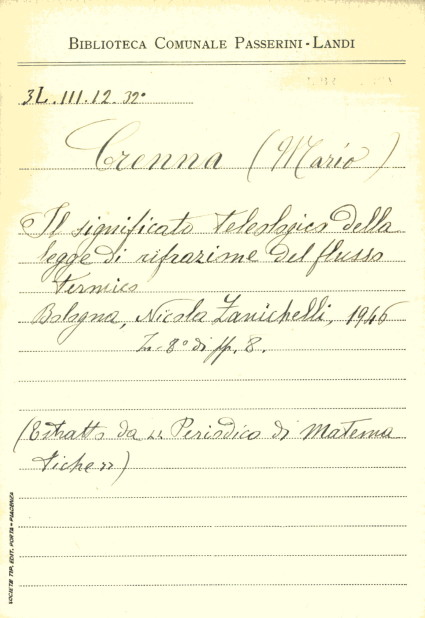 BIBLIOTECA COMUNALE PASSERINI-LANDI
3L.III.12.32°
Crenna (Mario)
Il significato teleologico della
legge di rifrazione del flusso
termico
Bologna, Nicola Zanichelli, 1946
In-8° di pp. 8.
(Estratto da "Periodico di Matema
tiche")
SOCIETÀ TIP. EDIT. PORTA - PIACENZA